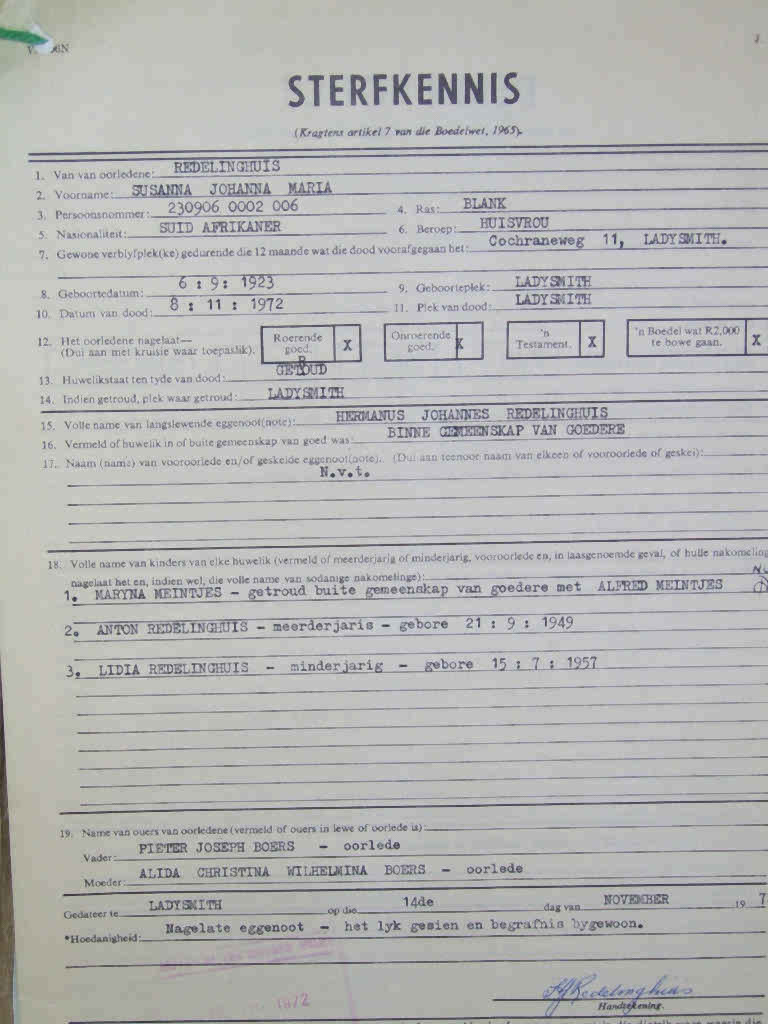 STERFKENNIS
(Kragtens artikel 7 van die Boedelwet, 1965).
1. Van van oorledene: REDELINGHUIS
2. Voorname: SUSANNA JOHANNA MARIA
3. Persoonsnommer: 230906 0002 006 4. Ras: BLANK
5. Nasionaliteit: SUID AFRIKANER 6. Beroep: HUISVROU
7. Gewone verblyfplek(ke) gedurende die 12 maande wat die dood voorafgegaan het: Cochraneweg 11, LADYSMITH.
8. Geboortedatum: 6 : 9: 1923 9. Geboorteplek: LADYSMITH
10. Datum van dood: 8 : 11 : 1972 11. Plek van dood: LADYSMITH
12. Het oorledene nagelaat— Roerende goed. X Onroerende goed. X 'n Testament. X 'n Boedel wat R2,000 te bowe gaan. X
(Dui aan met kruisie waar toepaslik).
13. Huwelikstaat ten tyde van dood: GETROUD
14. Indien getroud, plek waar getroud: LADYSMITH
15. Volle name van langslewende eggenoot(note): HERMANUS JOHANNES REDELINGHUIS
16. Vermeld of huwelik in of buite gemeenskap van goed was: BINNE GEMEENSKAP VAN GOEDERE
17. Naam (name) van vooroorlede en/of geskeide eggenoot(note). (Dui aan teenoor naam van elkeen of vooroorlede of geskei):
N.v.t.
18. Volle name van kinders van elke huwelik (vermeld of meerderjarig of minderjarig, vooroorlede en, in laasgenoemde geval, of hulle nakomeling
nagelaat het en, indien wel, die volle name van sodanige nakomelinge):
1. MARYNA MEINTJES - getroud buite gemeenskap van goedere met ALFRED MEINTJES
2. ANTON REDELINGHUIS - meerderjaris - gebore 21 : 9 : 1949
3. LIDIA REDELINGHUIS - minderjarig - gebore 15 : 7 : 1957
19. Name van ouers van oorledene (vermeld of ouers in lewe of oorlede is):
Vader: PIETER JOSEPH BOERS - oorlede
Moeder: ALIDA CHRISTINA WILHELMINA BOERS - oorlede
Gedateer te LADYSMITH op die 14de dag van NOVEMBER 19 7
*Hoedanigheid: Nagelate eggenoot - het lyk gesien en begrafnis bygewoon.
1972
HJRedelinghuis
Handtekening.